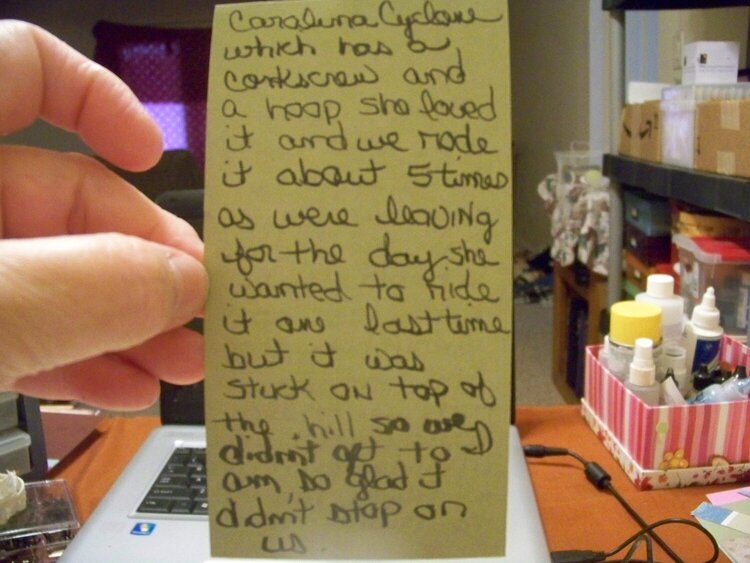 Carolina Cyclone
which has a
corkscrew and
a hoop she loved
it and we rode
it about 5 times
as were leaving
for the day she
wanted to ride
it one last time
but it was
stuck on top of
the hill so we
didn't get to I
am so glad it
didn't stop on
us